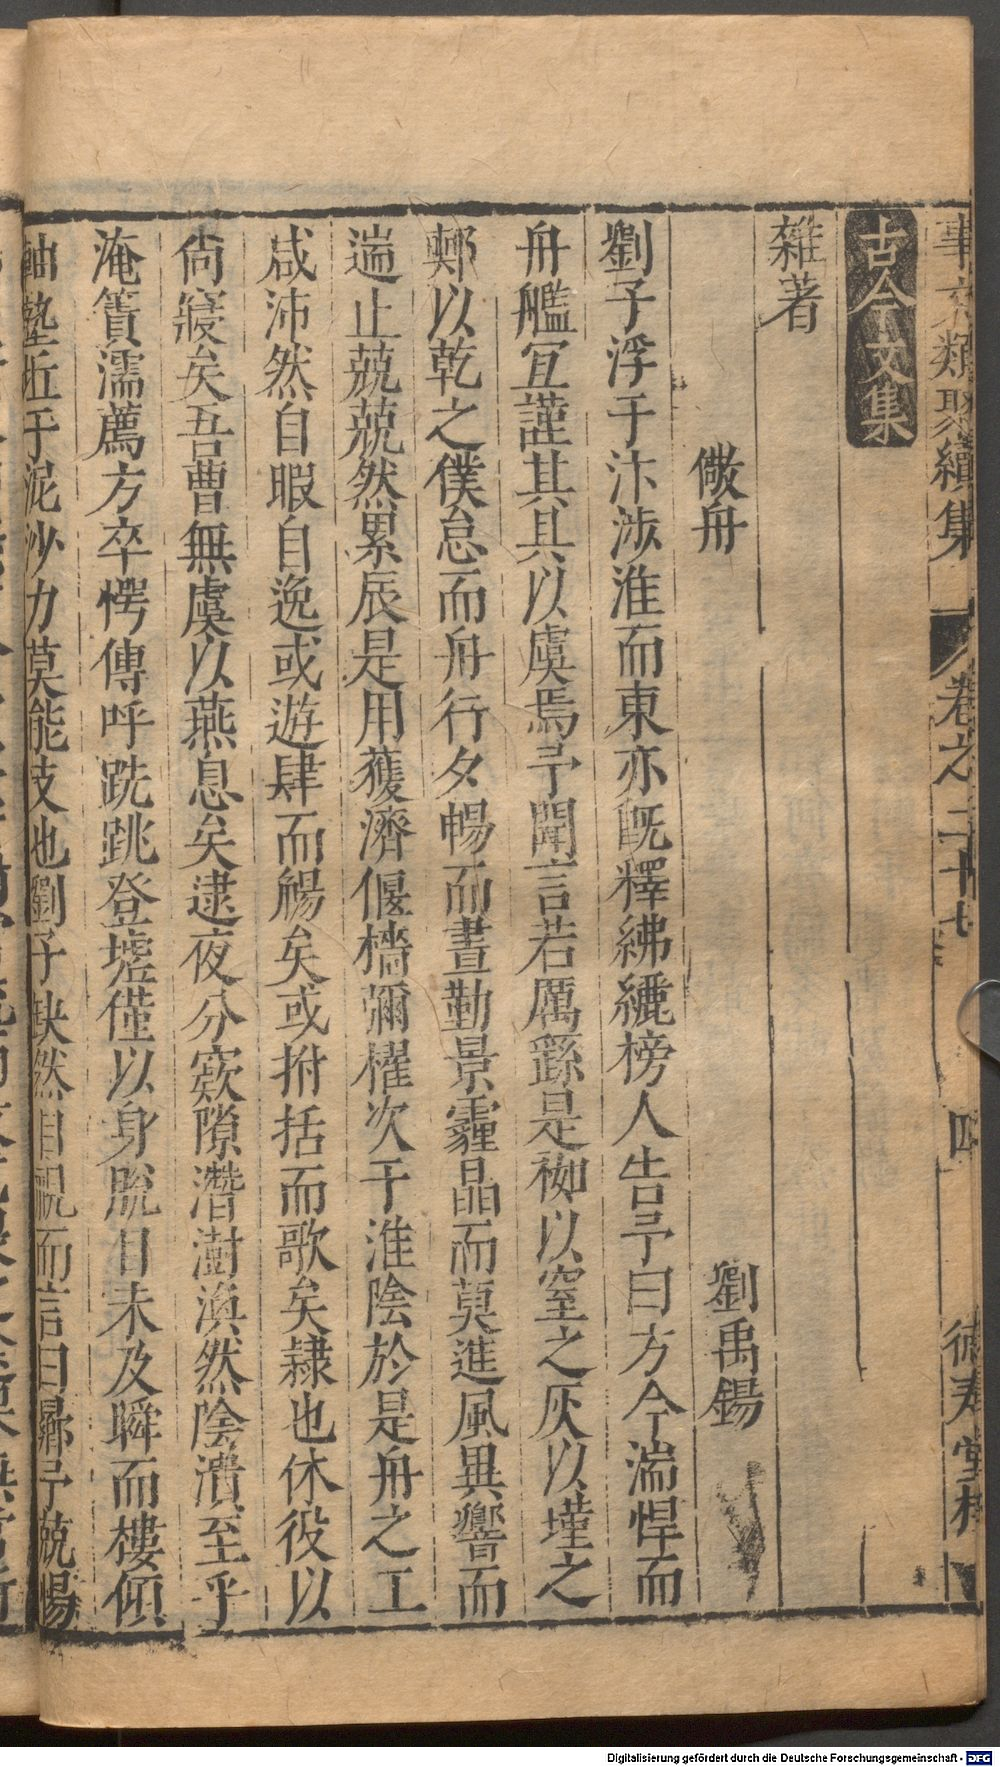 事文類聚續集 卷之二十七 四 德壽堂梓
古今文集
雜著
儆舟 劉禹錫
劉子浮于汴涉淮而東亦旣釋紼纚榜人告予曰方今湍悍而
舟艦宜謹其具以虞焉予聞言若厲繇是袽以窒之灰以墐之
𣂏以乾之僕怠而舟行夕暢而晝勤景霾晶而莫進風異響而
遄止兢兢然累辰是用獲濟偃檣彌櫂次于淮陰於是舟之工
咸沛然自暇自逸或遊肆而觴矣或拊括而歌矣隷也休役以
尙寢矣吾曹無虞以燕息矣逮夜分窾隙潛澍渙然陰潰至乎
淹簀濡薦方卒愕傳呼跣跳登墟僅以身脫目未及瞬而樓傾
軸墊圻于泥沙力莫能支也劉子缺然自視而言曰曏予兢惕